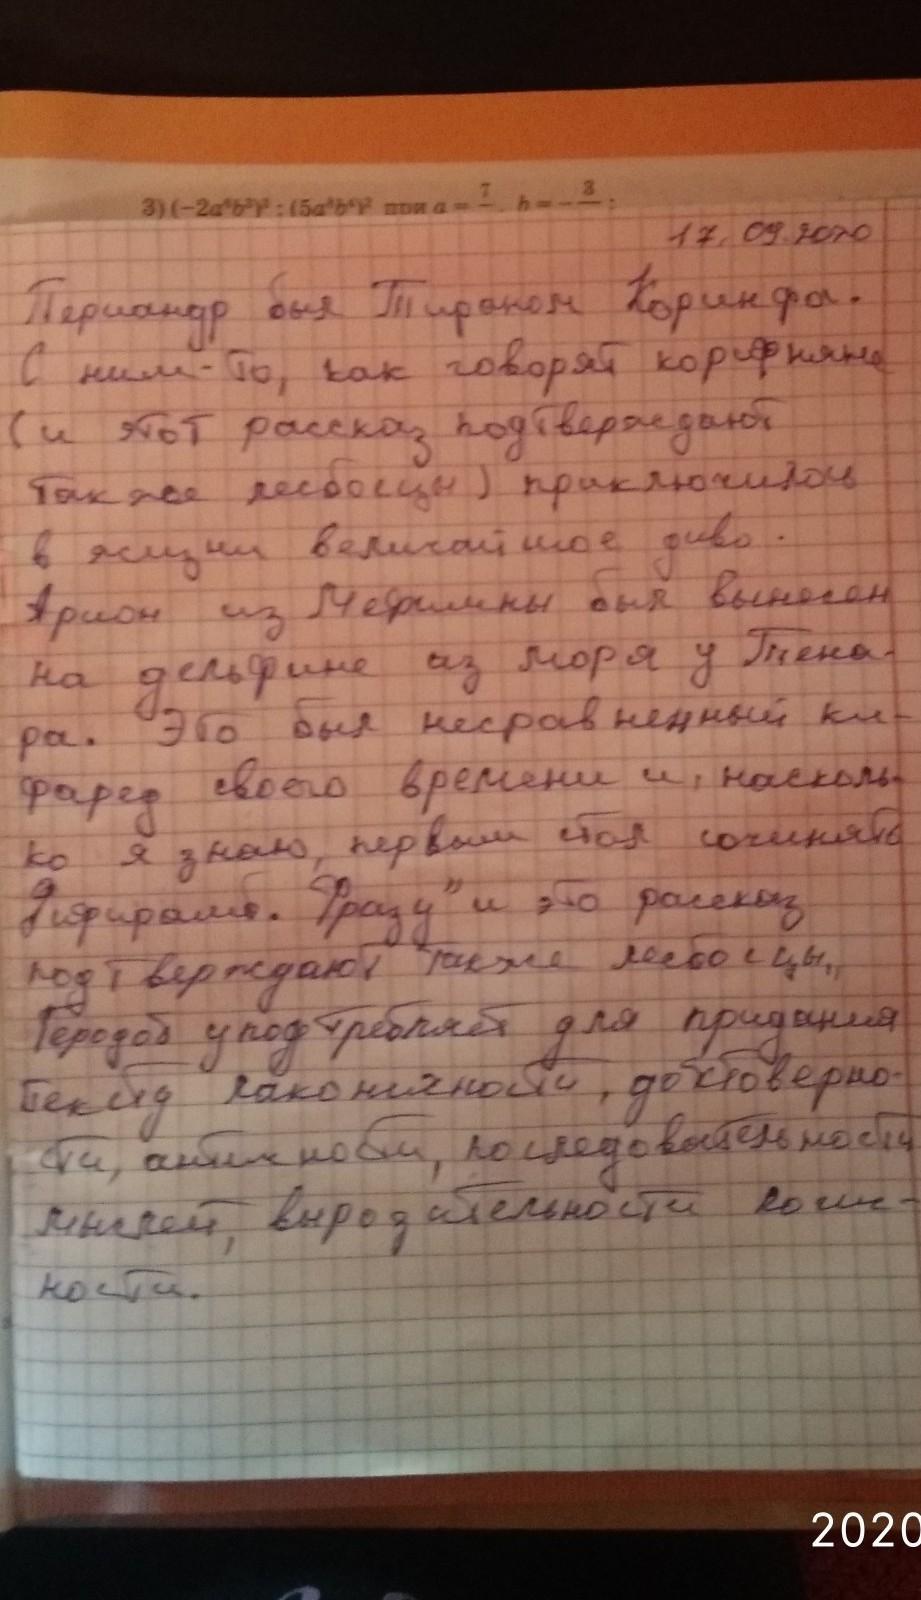 3) (−2a⁴b³)³ : (5a³b⁴)² при a = 7, b = − 3 ;
17.09.2020
Периандр был Тираном Коринфа.
С ним-то, как говорят корифняне
(и этот рассказ подтверждают
также лесбосцы) приключилось
в жизни величайшее диво.
Арион из Мефимны был вынесен
на дельфине из моря у Тена-
ра. Это был несравненный ки-
фаред своего времени и, насколь-
ко я знаю, первым стал сочинять
Дифирамб. Фразу "и это рассказ
подтверждают также лесбосцы„
Геродот употребляет для придания
тексту лаконичности, достоверно-
сти, античности, последовательности
мыслей, выродительности
ности.
2020